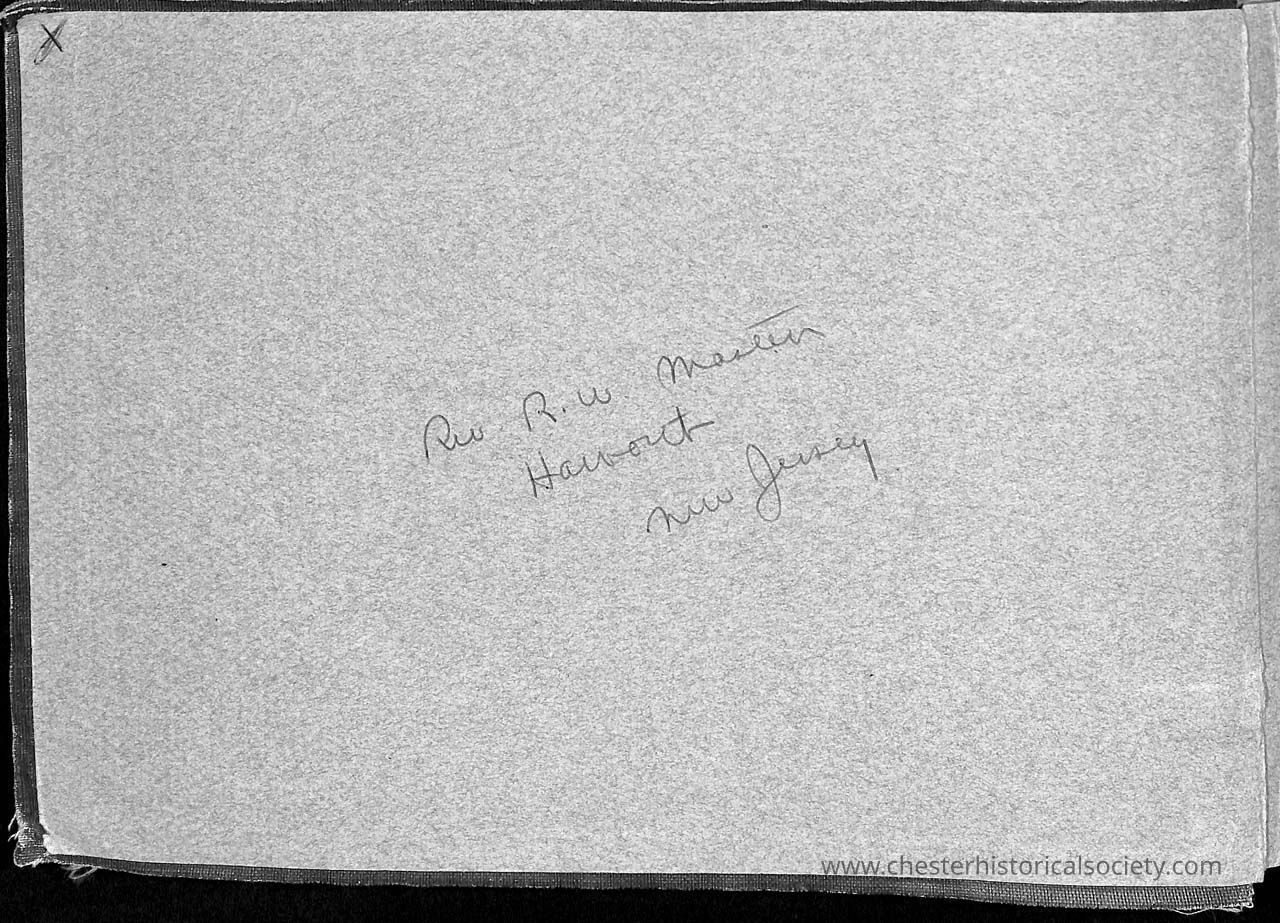 X
Rev. R. W. Masten
Haworth
New Jersey
www.chesterhistoricalsociety.com